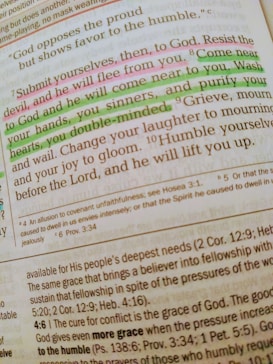 "God opposes the proud
but shows favor to the humble."c
7Submit yourselves, then, to God. Resist the
devil, and he will flee from you. 8Come near
to God and he will come near to you. Wash
your hands, you sinners, and purify your
hearts, you double-minded. 9Grieve, mourn
and wail. Change your laughter to mourning
and your joy to gloom. 10Humble yourselve
before the Lord, and he will lift you up.
a 4 An allusion to covenant unfaithfulness; see Hosea 3:1. b 5 Or that the
caused to dwell in us envies intensely; or that the Spirit he caused to dwell in
jealously c 6 Prov. 3:34
available for His people's deepest needs (2 Cor. 12:9; Heb
The same grace that brings a believer into fellowship with
sustain that fellowship in spite of the pressures of the wo
5:20; 2 Cor. 12:9; Heb. 4:16).
4:6 | The cure for conflict is the grace of God. The good
God gives even more grace when the pressure increase
to the humble (Ps. 138:6; Prov. 3:34; 1 Pet. 5:5). Go
to the prayers of those who humbly requ